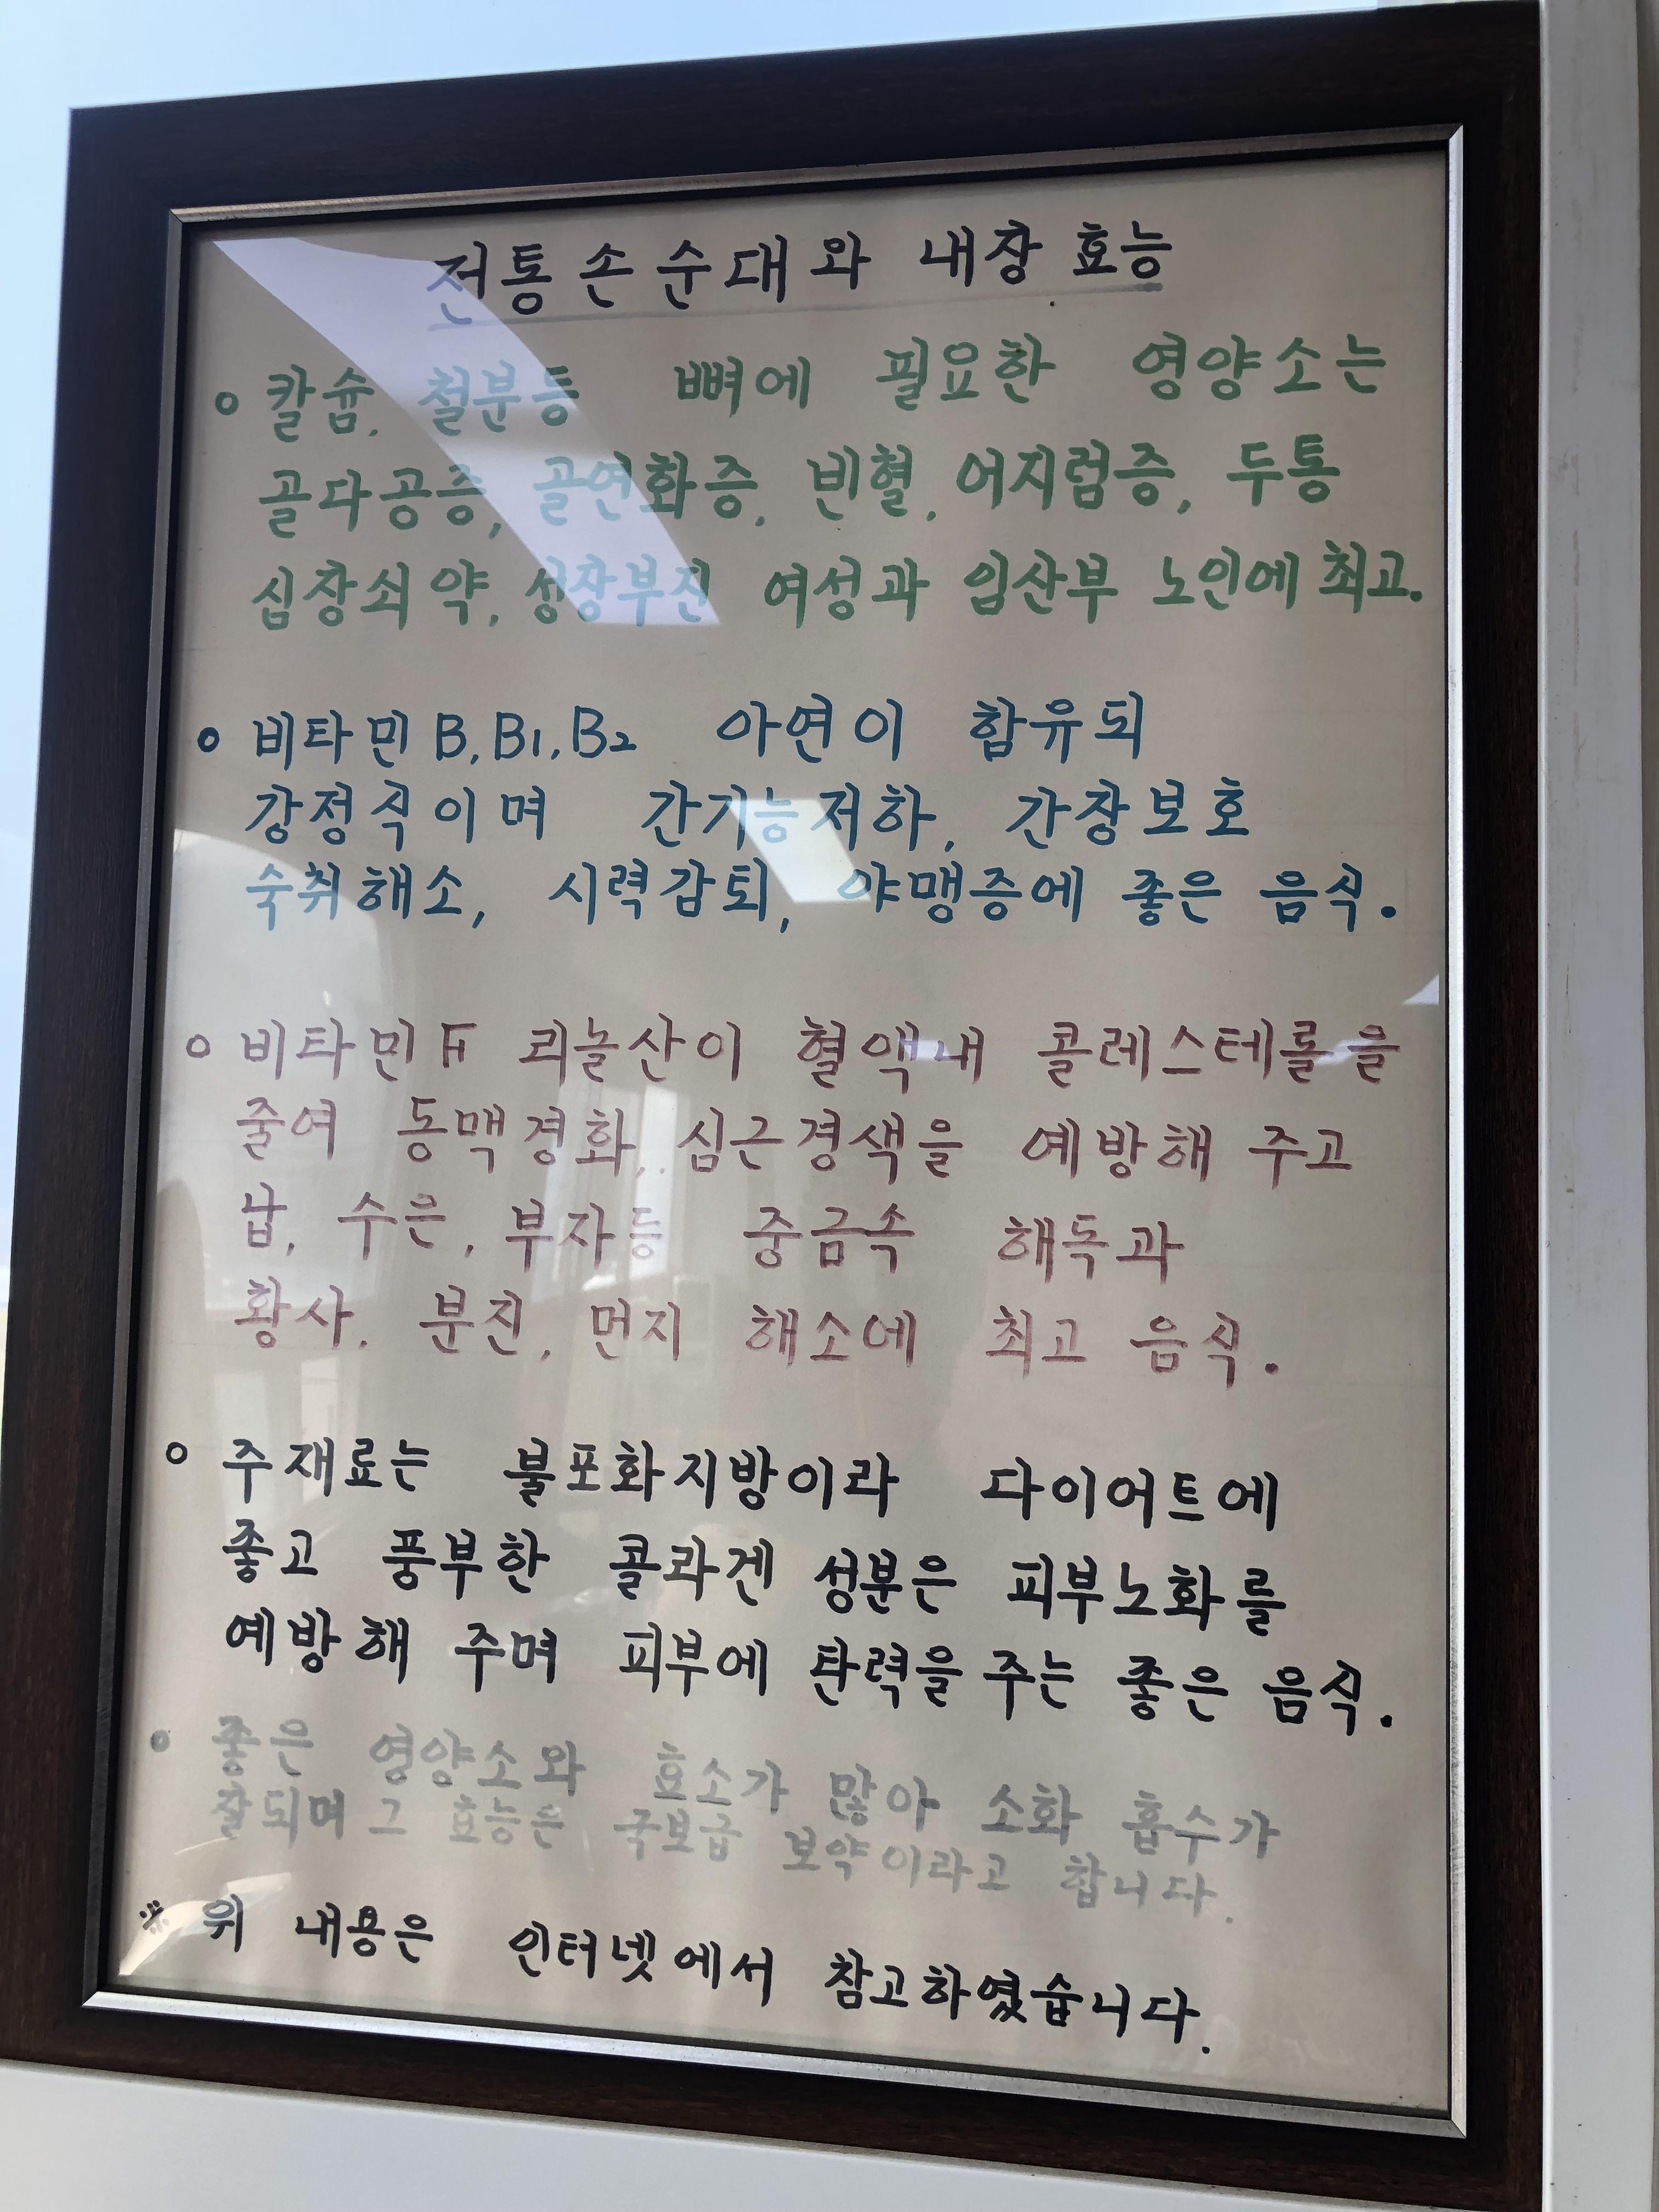 전통손순대와 내장 효능
○ 칼슘, 철분등 뼈에 필요한 영양소는
골다공증, 골연화증, 빈혈, 어지럼증, 두통
심장쇠약, 성장부진 여성과 임산부 노인에 최고.
○ 비타민 B, B1, B2 아연이 함유되
강정식이며 간기능저하, 간장보호
숙취해소, 시력감퇴, 야맹증에 좋은 음식.
○ 비타민 F 리놀산이 혈액내 콜레스테롤을
줄여 동맥경화, 심근경색을 예방해 주고
납, 수은, 부자등 중금속 해독과
황사, 분진, 먼지 해소에 최고 음식.
○ 주재료는 불포화지방이라 다이어트에
좋고 풍부한 콜라겐 성분은 피부노화를
예방해 주며 피부에 탄력을 주는 좋은 음식.
○ 좋은 영양소와 효소가 많아 소화 흡수가
잘되며 그 효능은 국보급 보약이라고 합니다.
※ 위 내용은 인터넷에서 참고하였습니다.